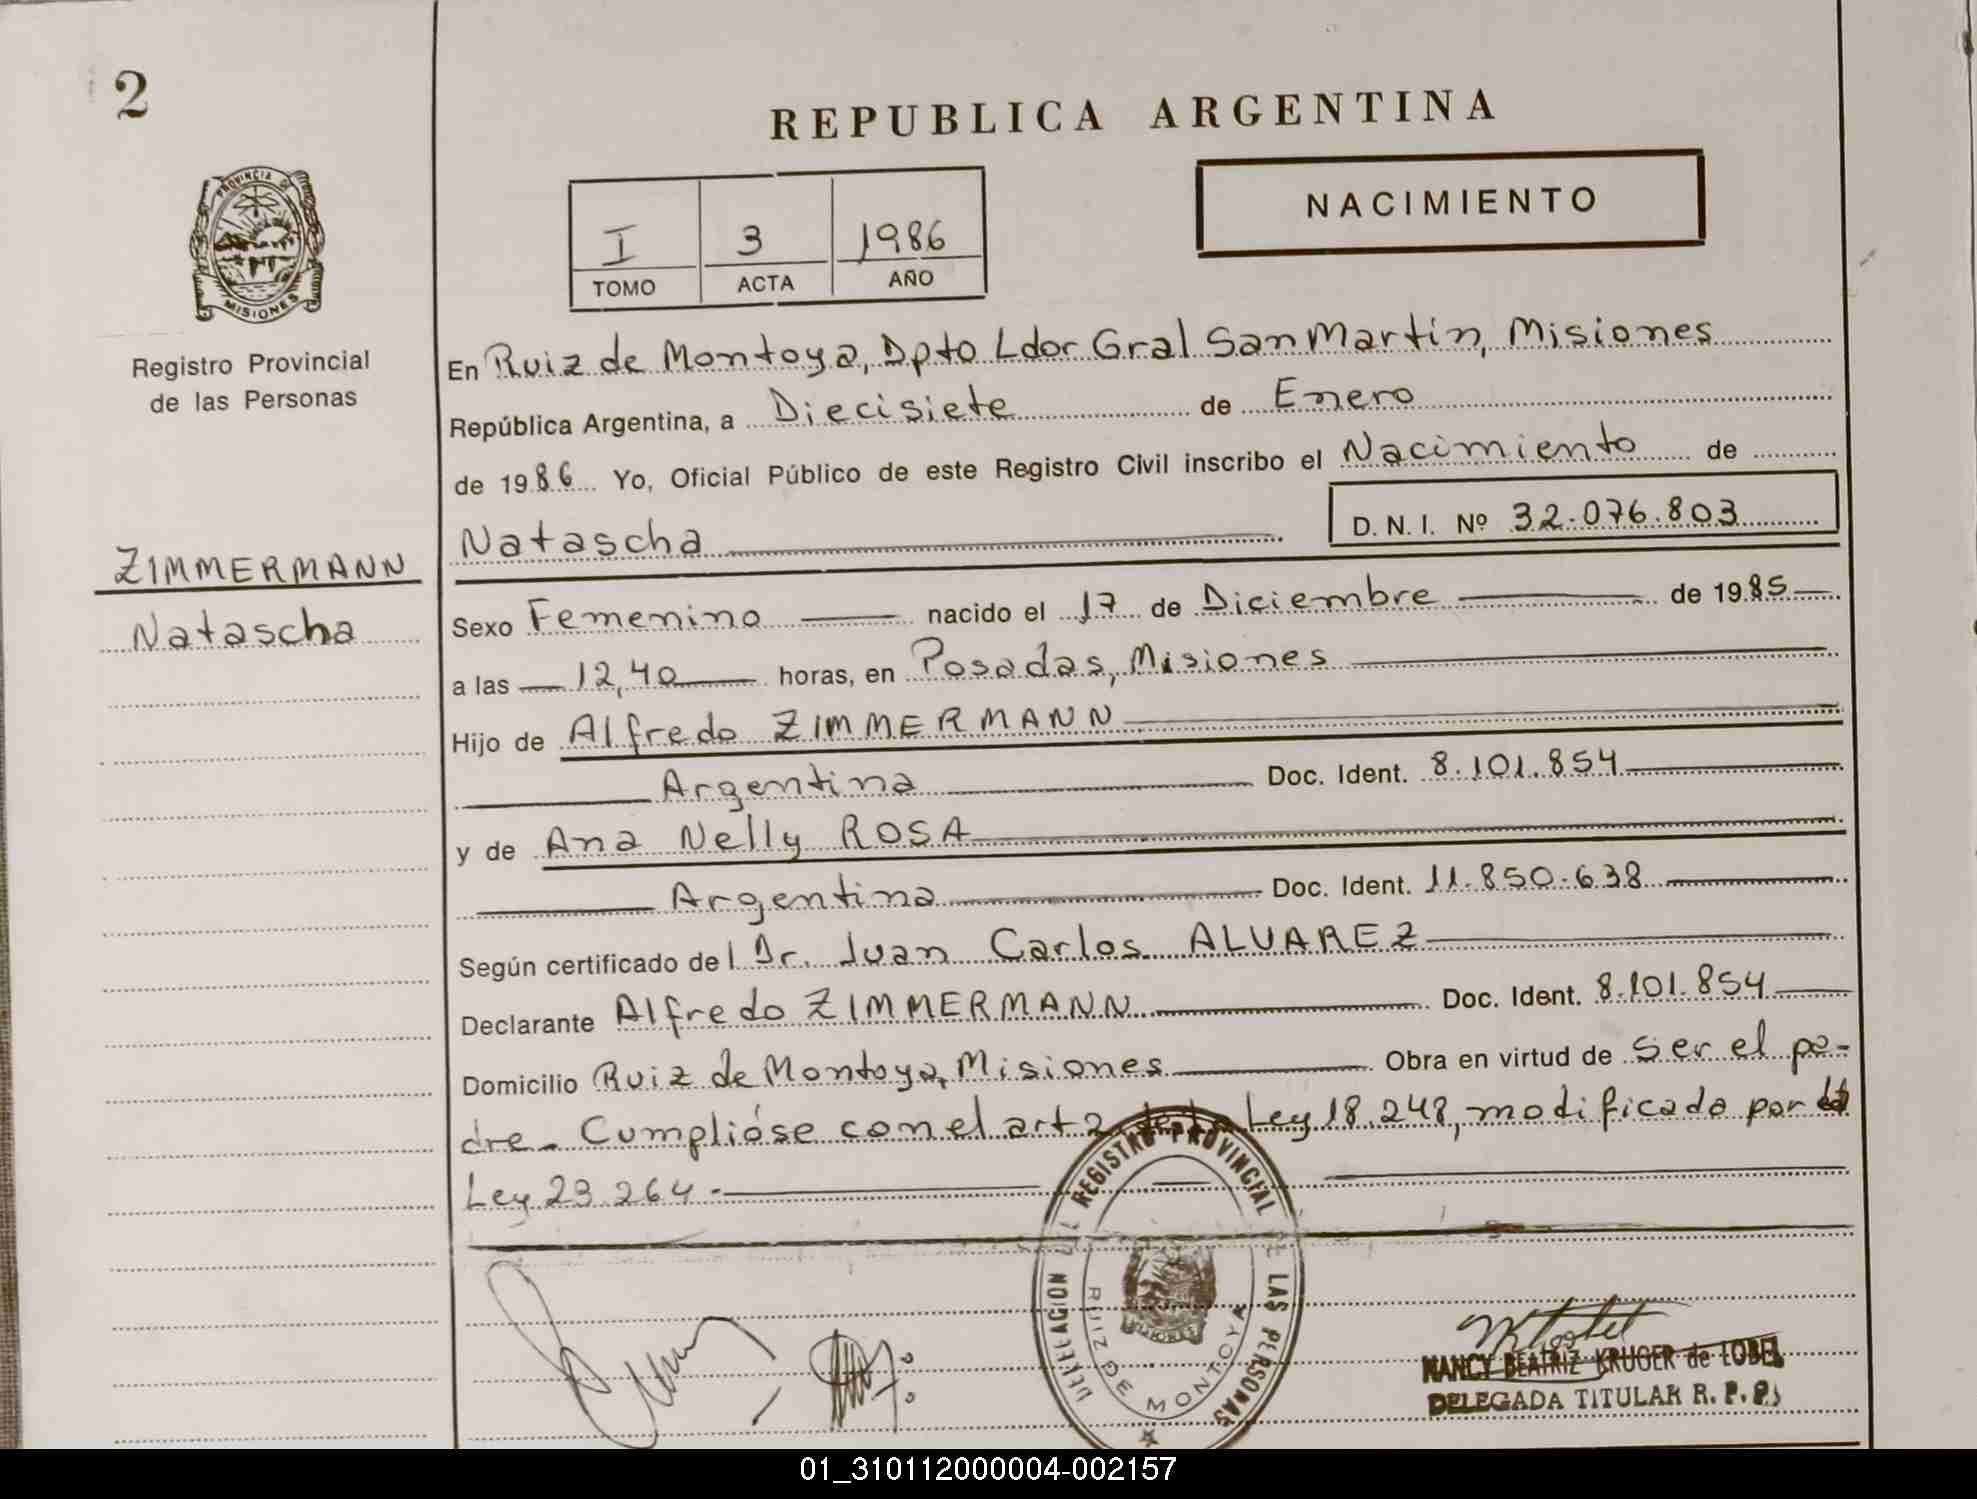 2
REPUBLICA ARGENTINA
PROVINCIA DE
MISIONES
Registro Provincial
de las Personas
I 3 1986
TOMO ACTA AÑO
NACIMIENTO
En Ruiz de Montoya, Dpto Ldor Gral San Martín, Misiones
República Argentina, a Diecisiete de Enero
de 1986 Yo, Oficial Público de este Registro Civil inscribo el Nacimiento de
Natascha D. N. I. Nº 32.076.803
ZIMMERMANN
Natascha
Sexo Femenino nacido el 17 de Diciembre de 1985
a las 12,40 horas, en Posadas, Misiones
Hijo de Alfredo ZIMMERMANN
Argentina Doc. Ident. 8.101.854
y de Ana Nelly ROSA
Argentina Doc. Ident. 11.850.638
Según certificado del Dr. Juan Carlos ALVAREZ
Declarante Alfredo ZIMMERMANN Doc. Ident. 8.101.854
Domicilio Ruiz de Montoya, Misiones Obra en virtud de ser el pa-
dre. Cumplióse con el art 2 de la Ley 18.248, modificada por la
Ley 23.264.-
DELEGACION REGISTRO PROVINCIAL DE LAS PERSONAS
RUIZ DE MONTOYA
NANCY BEATRIZ KRUGER de LOBEL
DELEGADA TITULAR R. P. P.
01_310112000004-002157